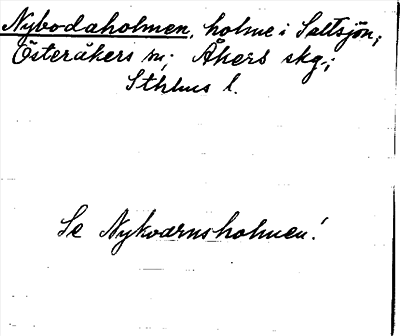 Nybodaholmen, holme i Saltsjön;
Österåkers sn; Åkers skg.;
Sthlms l.
Se Nykvarnsholmen!